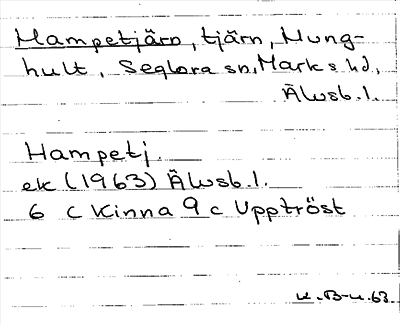 Hampetjärn, tjärn, Hung-
hult, Seglora sn, Marks hd,
Älvsb. l.
Hampetj.
ek (1963) Älvsb. l.
6 c Kinna 9 c Upptröst
K. B-u. 63